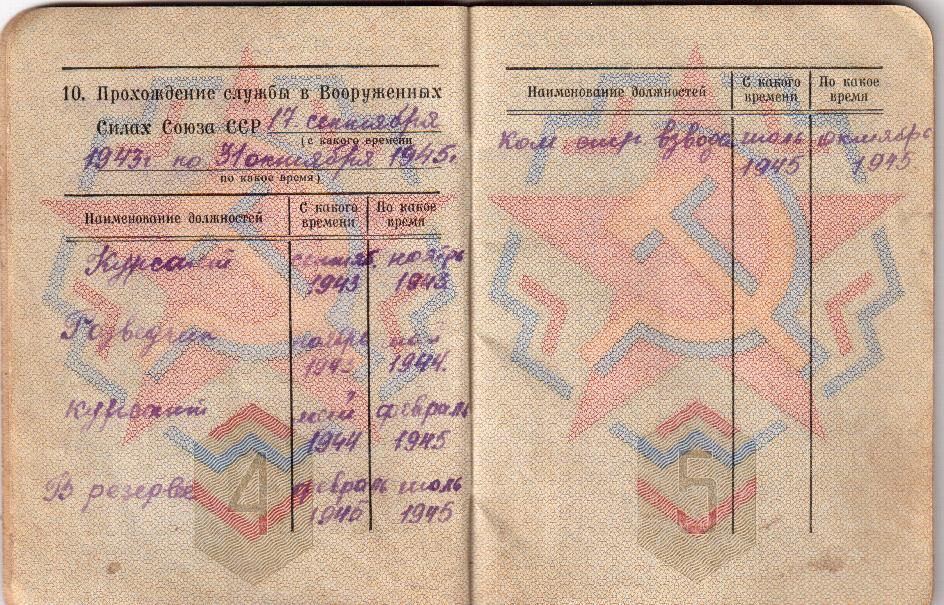 10. Прохождение службы в Вооруженных
Силах Союза ССР 17 сентября
(с какого времени
1943г по 31 октября 1945г
по какое время)
Наименование должностей С какого времени По какое время
Курсант сентяб. ноябрь
1943 1943
Разведчик ноябрь май
1943 1944.
курсант май февраль
1944 1945
В резерве февраль июль
1945 1945
4
Наименование должностей С какого времени По какое время
Ком стр. взвода июль октябрь
1945 1945
5